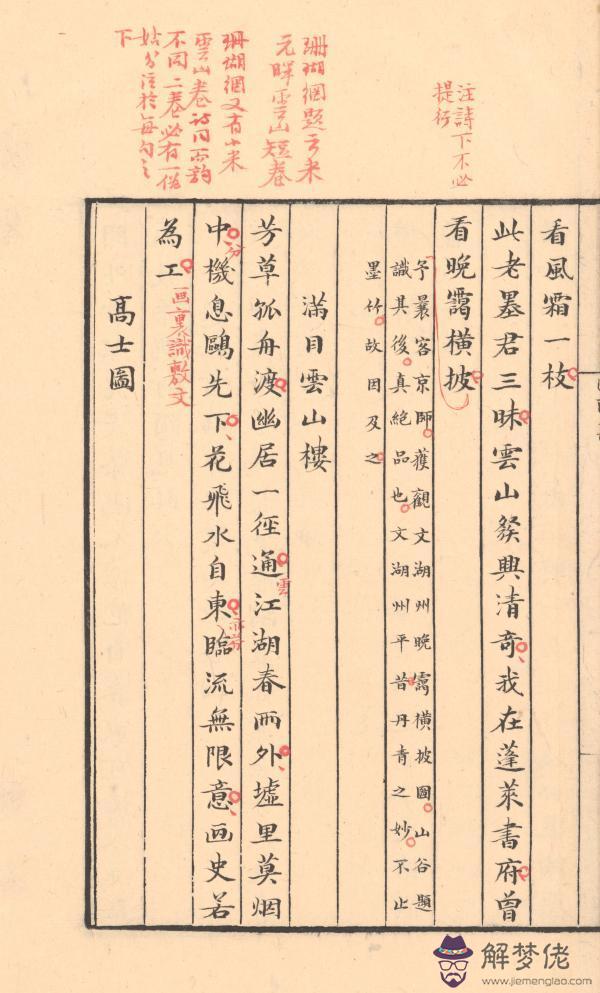 看風霜一枝
此老墨君三昧雲山發興清奇我在蓬萊書府曾
看晚靄橫披
予曩客京師獲觀文湖州晚靄橫披圖山谷題
識其後真絕品也文湖州平昔丹青之妙不止
墨竹故因及之
滿目雲山樓
芳草孤舟渡幽居一徑通江湖春雨外墟里莫烟
中機息鷗先下花飛水自東臨流無限意画史若
為工
高士圖
注詩下不必
提行
珊瑚網題云米
元暉雲山短卷
珊瑚網又有小米
雲山卷詩同而韵
不同二卷必有一偽
姑分注於每句之
下
雲
分
亦芳
画裏識敷文
解梦佬
www.jiemenglao.com